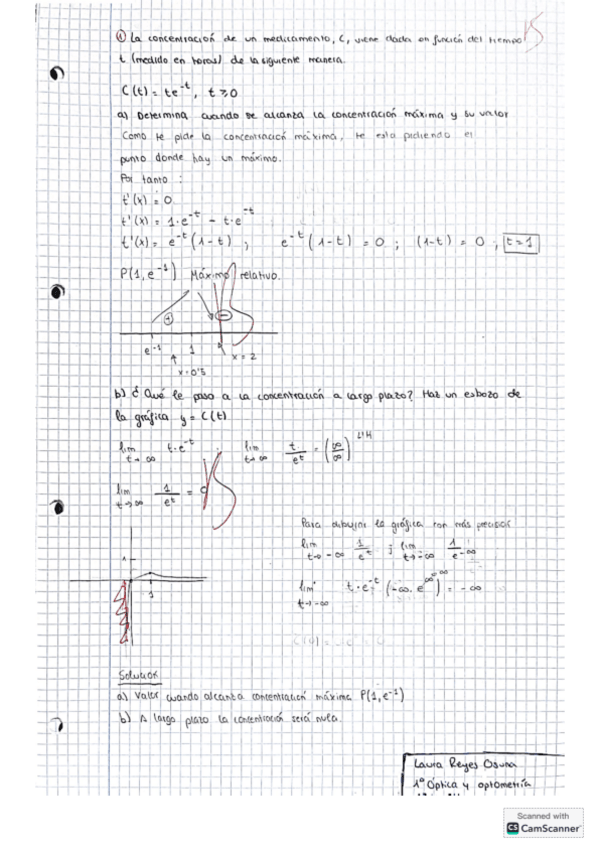 ① La concentración de un medicamento, C, viene dada en función del tiempo
t (medido en horas) de la siguiente manera.
C(t) = te^-t, t ≥ 0
a) Determina cuando se alcanza la concentración máxima y su valor
Como te pide la concentración máxima, te esta pidiendo el
punto donde hay un máximo.
Por tanto:
t'(x) = 0
t'(x) = 1·e^-t - t·e^-t
t'(x) = e^-t (1-t) ; e^-t (1-t) = 0 ; (1-t) = 0 ; t=1
P(1, e^-1) Máximo relativo.
+ -
e^-1 1 x = 2
x = 0'5
b) ¿Qué le pasa a la concentración a largo plazo? Haz un esbozo de
la gráfica y = C(t)
lim t→∞ t·e^-t ; lim t→∞ t/e^t = (∞/∞) L'H
lim t→∞ 1/e^t = 0
Para dibujar la gráfica con más precisión
lim t→-∞ 1/e^t ; lim t→-∞ 1/e^-∞
lim t→-∞ t·e^-t (-∞·e^∞) = -∞
1
1
Solución
a) Valor cuando alcanza concentración máxima P(1, e^-1)
b) A largo plazo la concentración será nula.
Laura Reyes Osuna
1º Óptica y optometría
Scanned with
CS CamScanner